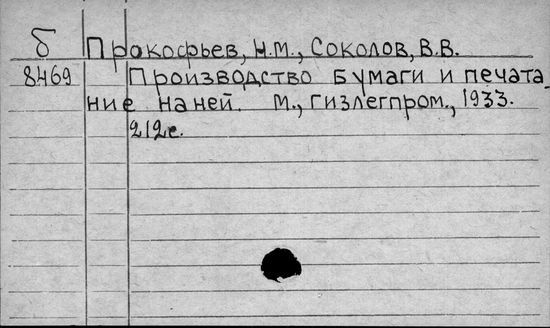 б Прокофьев, Н.М., Соколов, В.В.
8469 Производство бумаги и печата-
ние на ней. М., Гизлегпром., 1933.
212с.